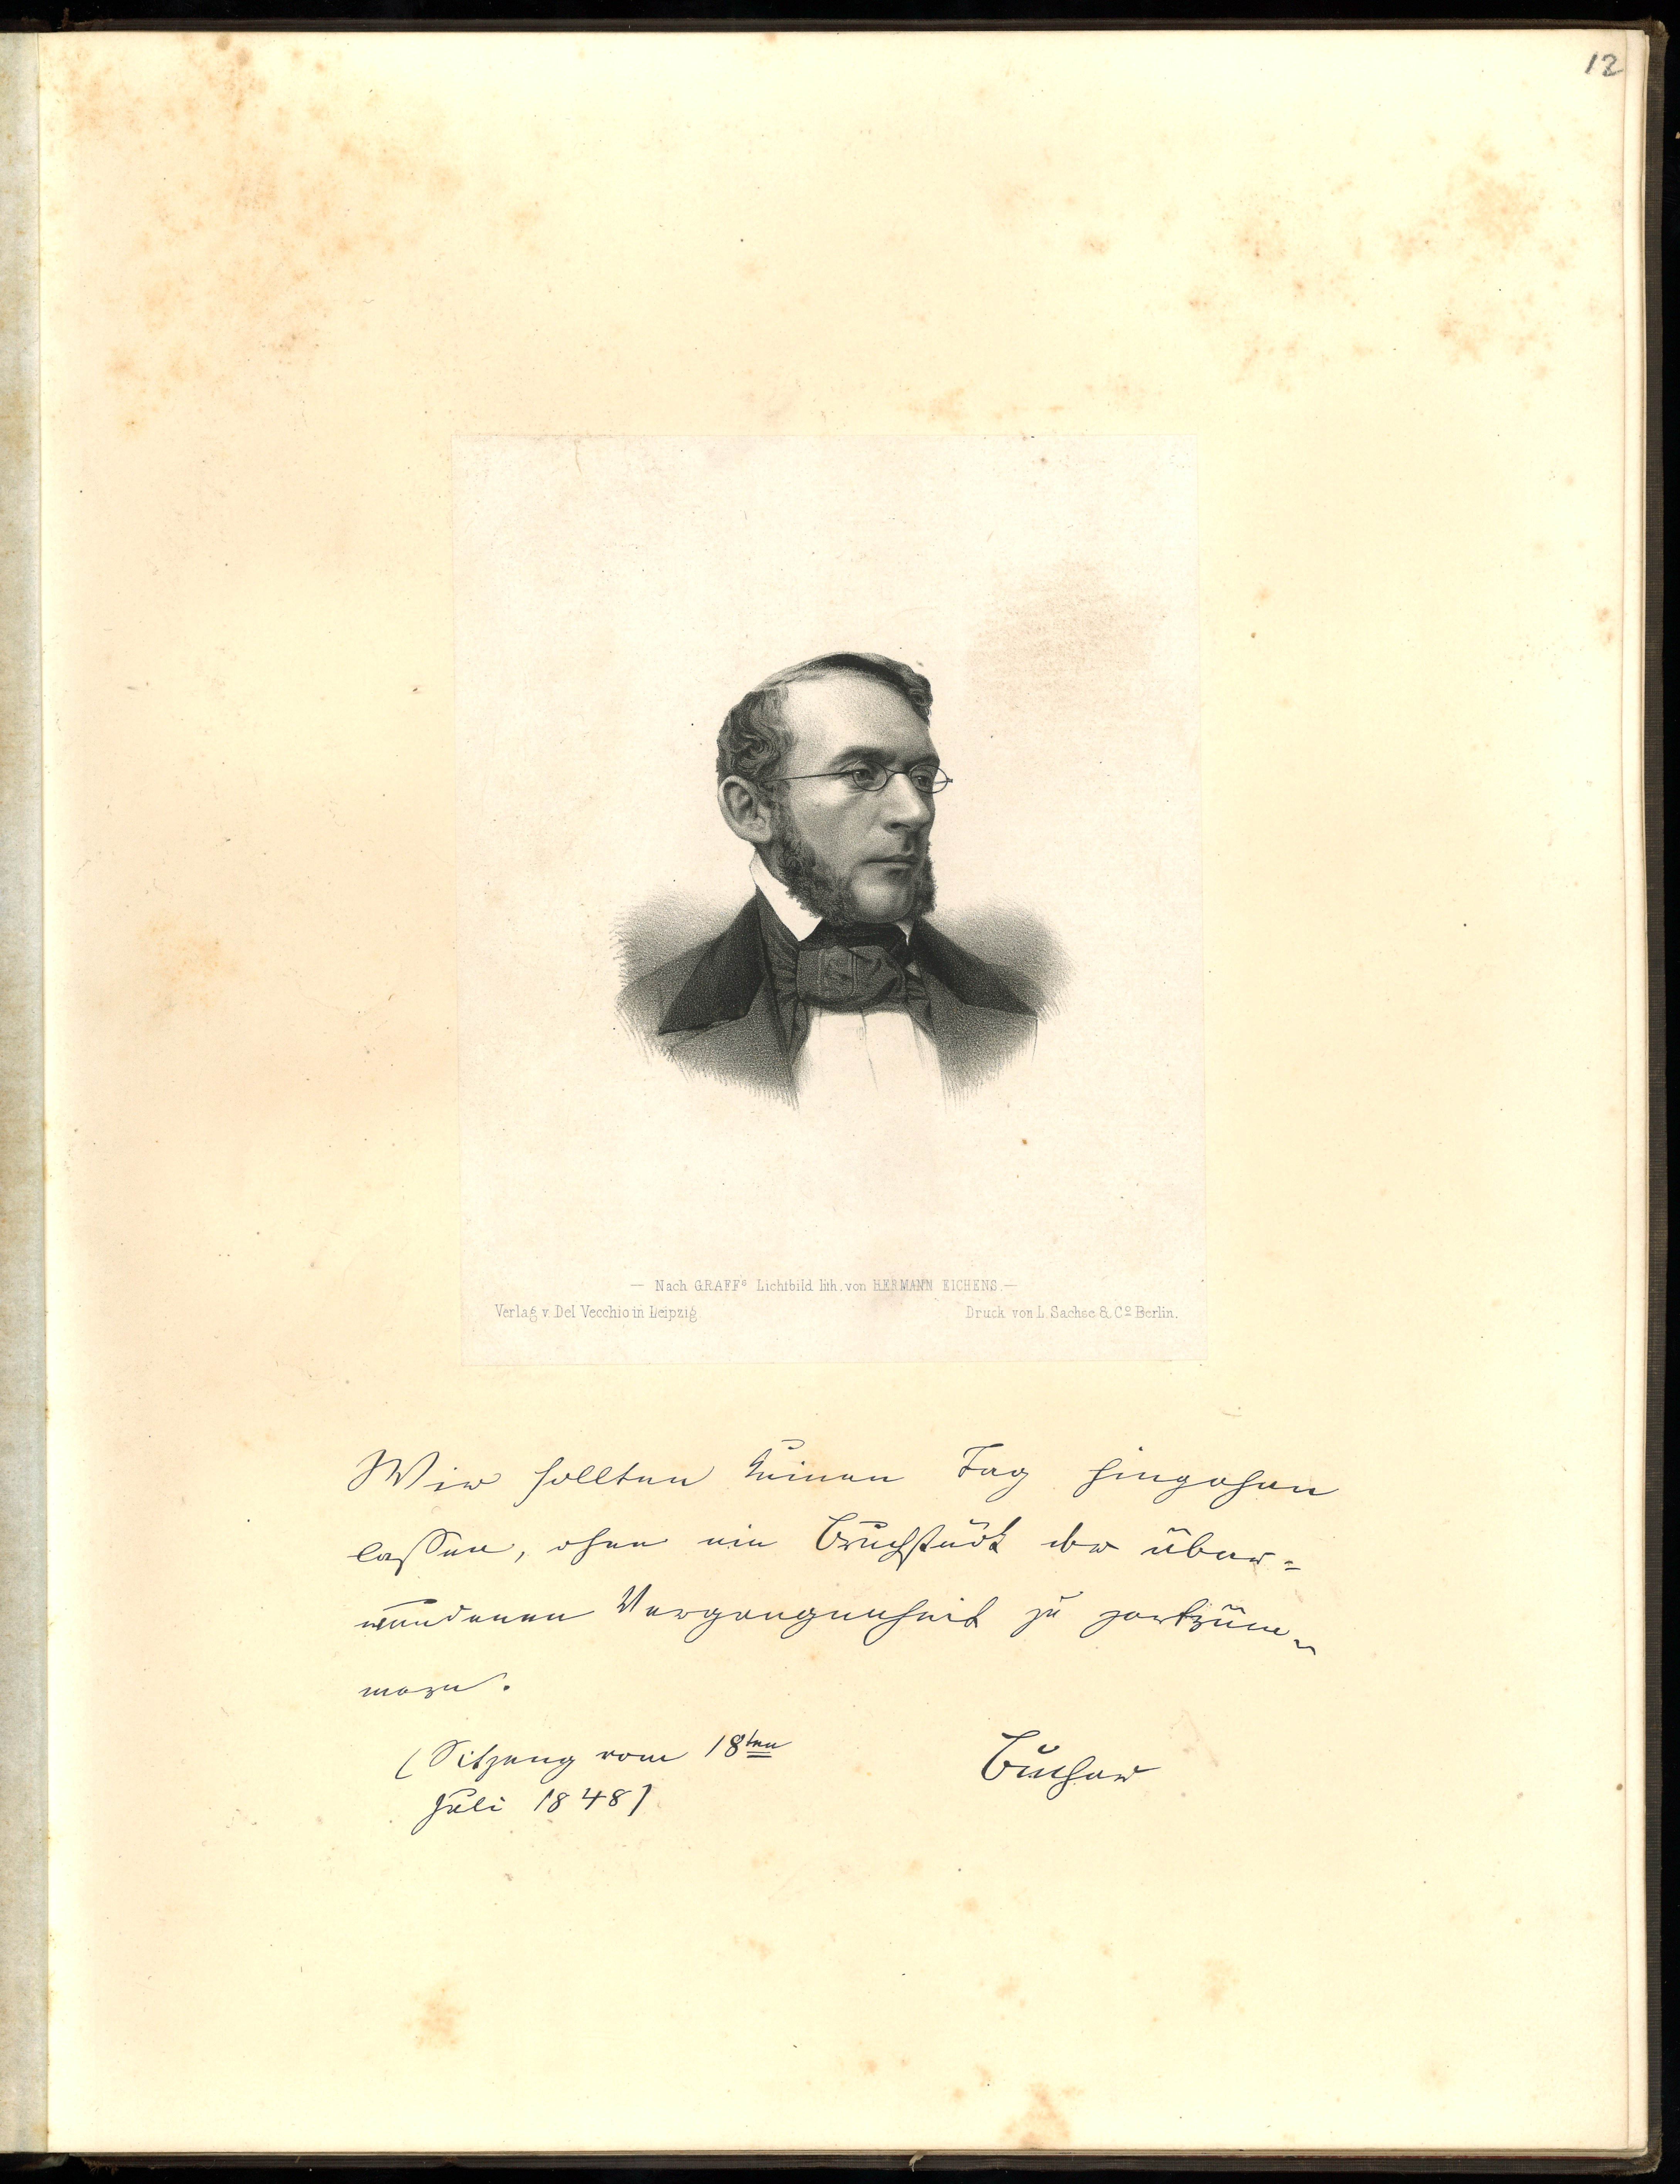 12
— Nach GRAFFs Lichtbild lith. von HERMANN EICHENS. —
Verlag v. Del Vecchio in Leipzig.
Druck von L. Sachse & Co Berlin.
Wir sollten keinen Tag hingehen
lassen, ohne ein Bruchstück der über=
wundenen Vergangenheit zu zertrüm-
mern.
(Sitzung vom 18ten
Juli 1848)
Bucher